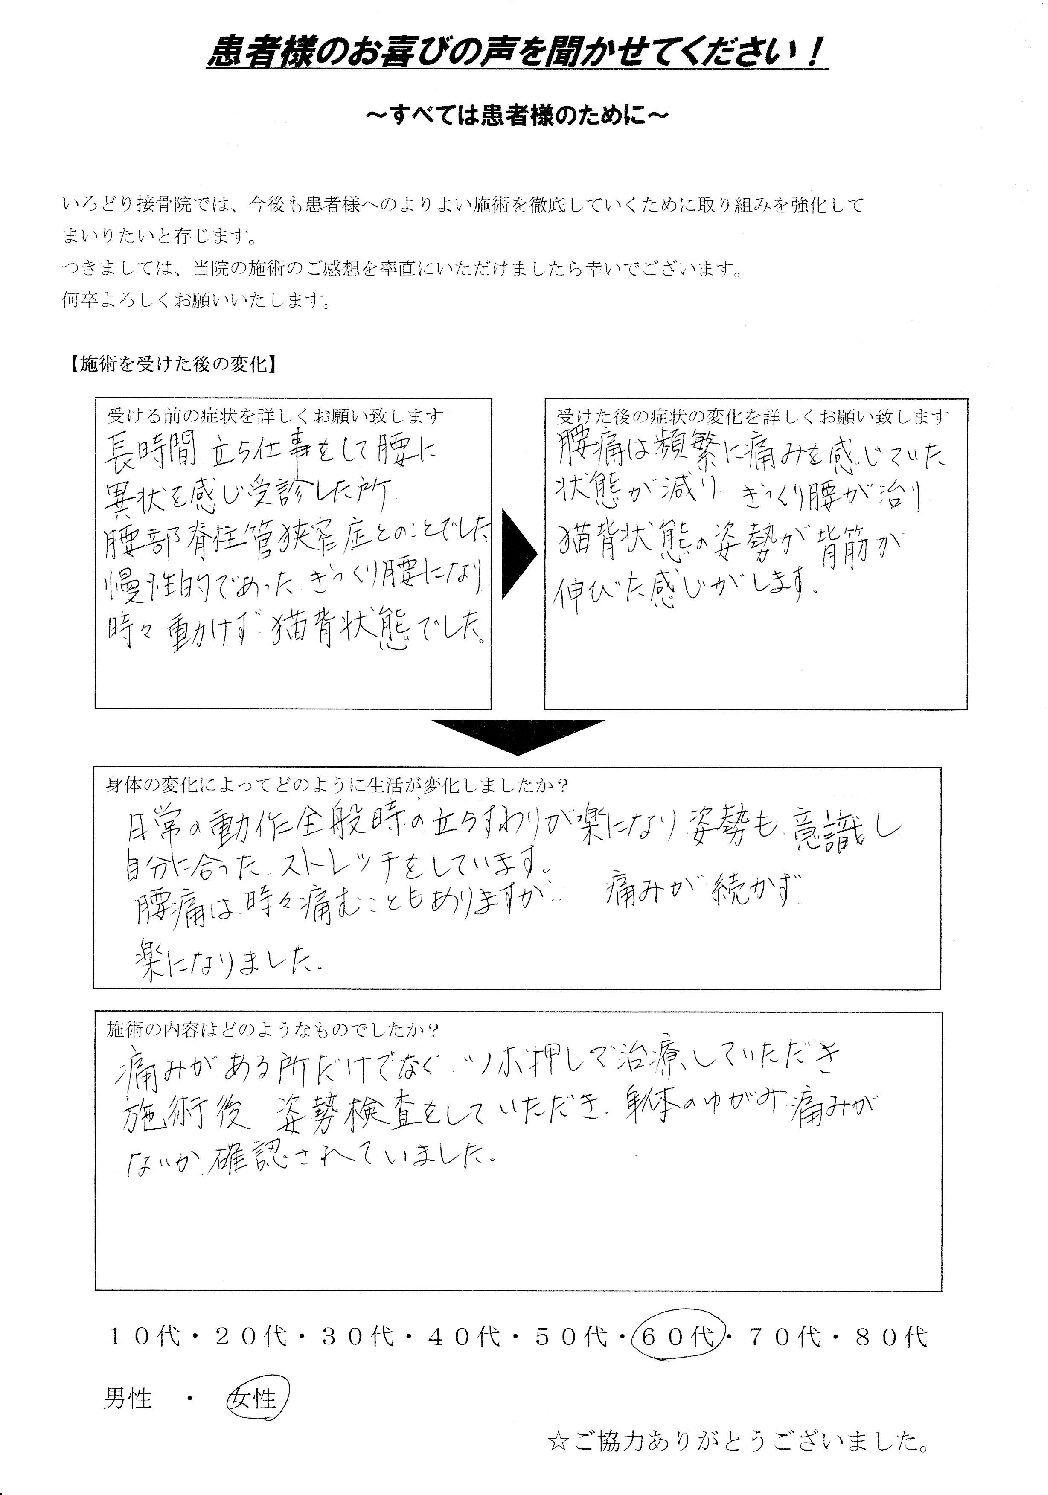 患者様のお喜びの声を聞かせてください！
～すべては患者様のために～
いろどり接骨院では、今後も患者様へのよりよい施術を徹底していくために取り組みを強化して
まいりたいと存じます。
つきましては、当院の施術のご感想を率直にいただけましたら幸いでございます。
何卒よろしくお願いいたします。
【施術を受けた後の変化】
受ける前の症状を詳しくお願い致します
長時間 立ち仕事をして腰に
異状を感じ受診した所
腰部脊柱管狭窄症とのことでした
慢性的であった ぎっくり腰になり
時々動けず 猫背状態でした。
受けた後の症状の変化を詳しくお願い致します
腰痛は頻繁に痛みを感じていた
状態が減り ぎっくり腰が治り
猫背状態の姿勢が背筋が
伸びた感じがします。
身体の変化によってどのように生活が変化しましたか？
日常の動作全般時の立ちすわりが楽になり 姿勢も意識し
自分に合った ストレッチをしています。
腰痛は時々痛むこともありますが 痛みが続かず
楽になりました。
施術の内容はどのようなものでしたか？
痛みがある所だけでなく ツボ押しで治療していただき
施術後 姿勢検査をしていただき、身体のゆがみ 痛みが
ないか 確認されていました。
１０代・２０代・３０代・４０代・５０代・６０代・７０代・８０代
男性 ・ 女性
☆ご協力ありがとうございました。